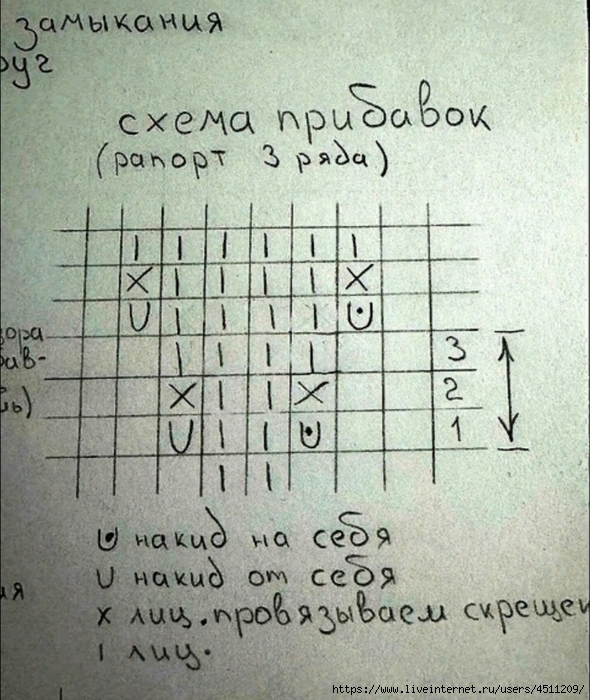 замыкания
схема прибавок
(рапорт 3 ряда)
I I I I I I
X I I I I X
U I I I I U
I I I I 3
X I I X 2
U I I U 1
I I
U накид на себя
U накид от себя
X лиц. провязываем
I лиц.
https://www.liveinternet.ru/users/4511209/